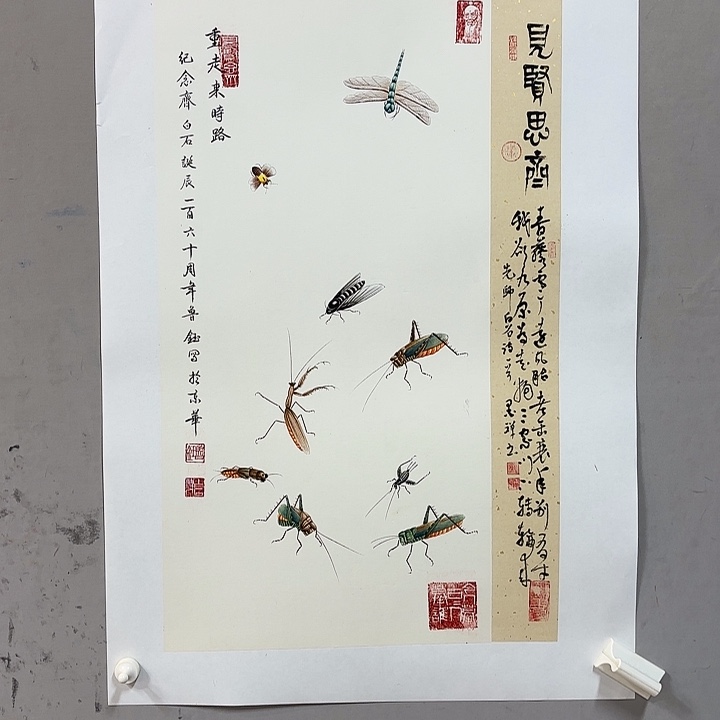 見賢思齊
青藤雪个遠凡胎老缶衰年別有才
我欲九原為走狗三家門下轉輪來
先師白石詩一首
重走来時路
紀念齊白石誕辰一百六十周年魯鈺寫於京華